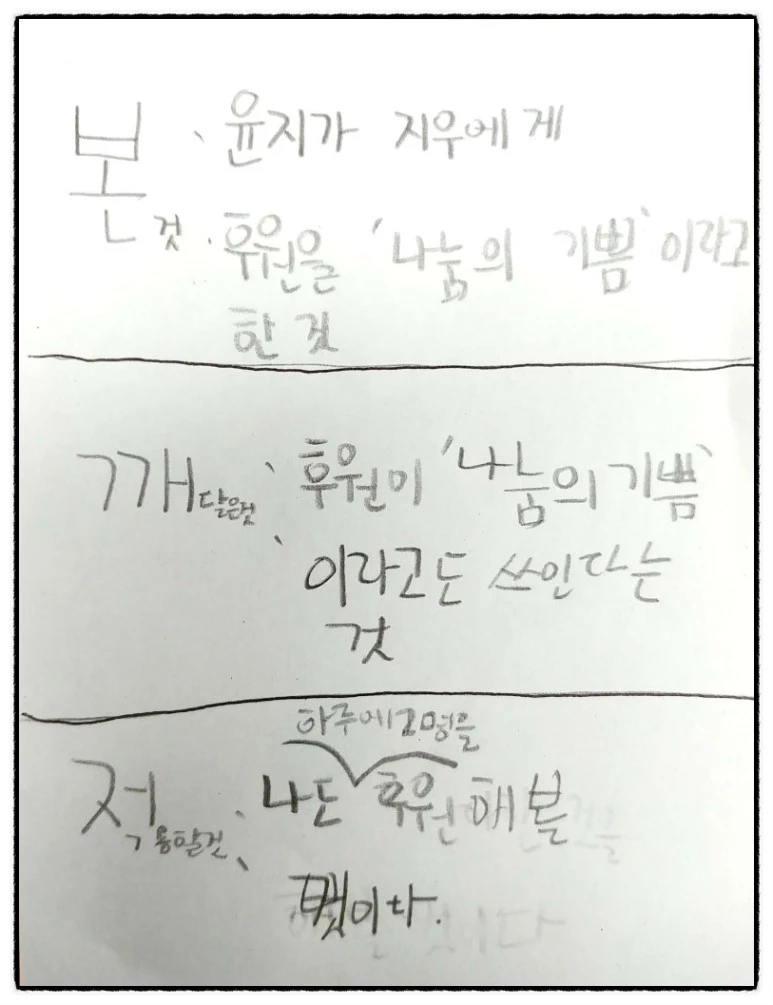 본것: 윤지가 지우에게
후원을 '나눔의 기쁨'이라고
한 것
깨달은것: 후원이 '나눔의 기쁨'
이라고도 쓰인다는
것
하루에 2명을
적용할것: 나도 후원해볼
것이다.